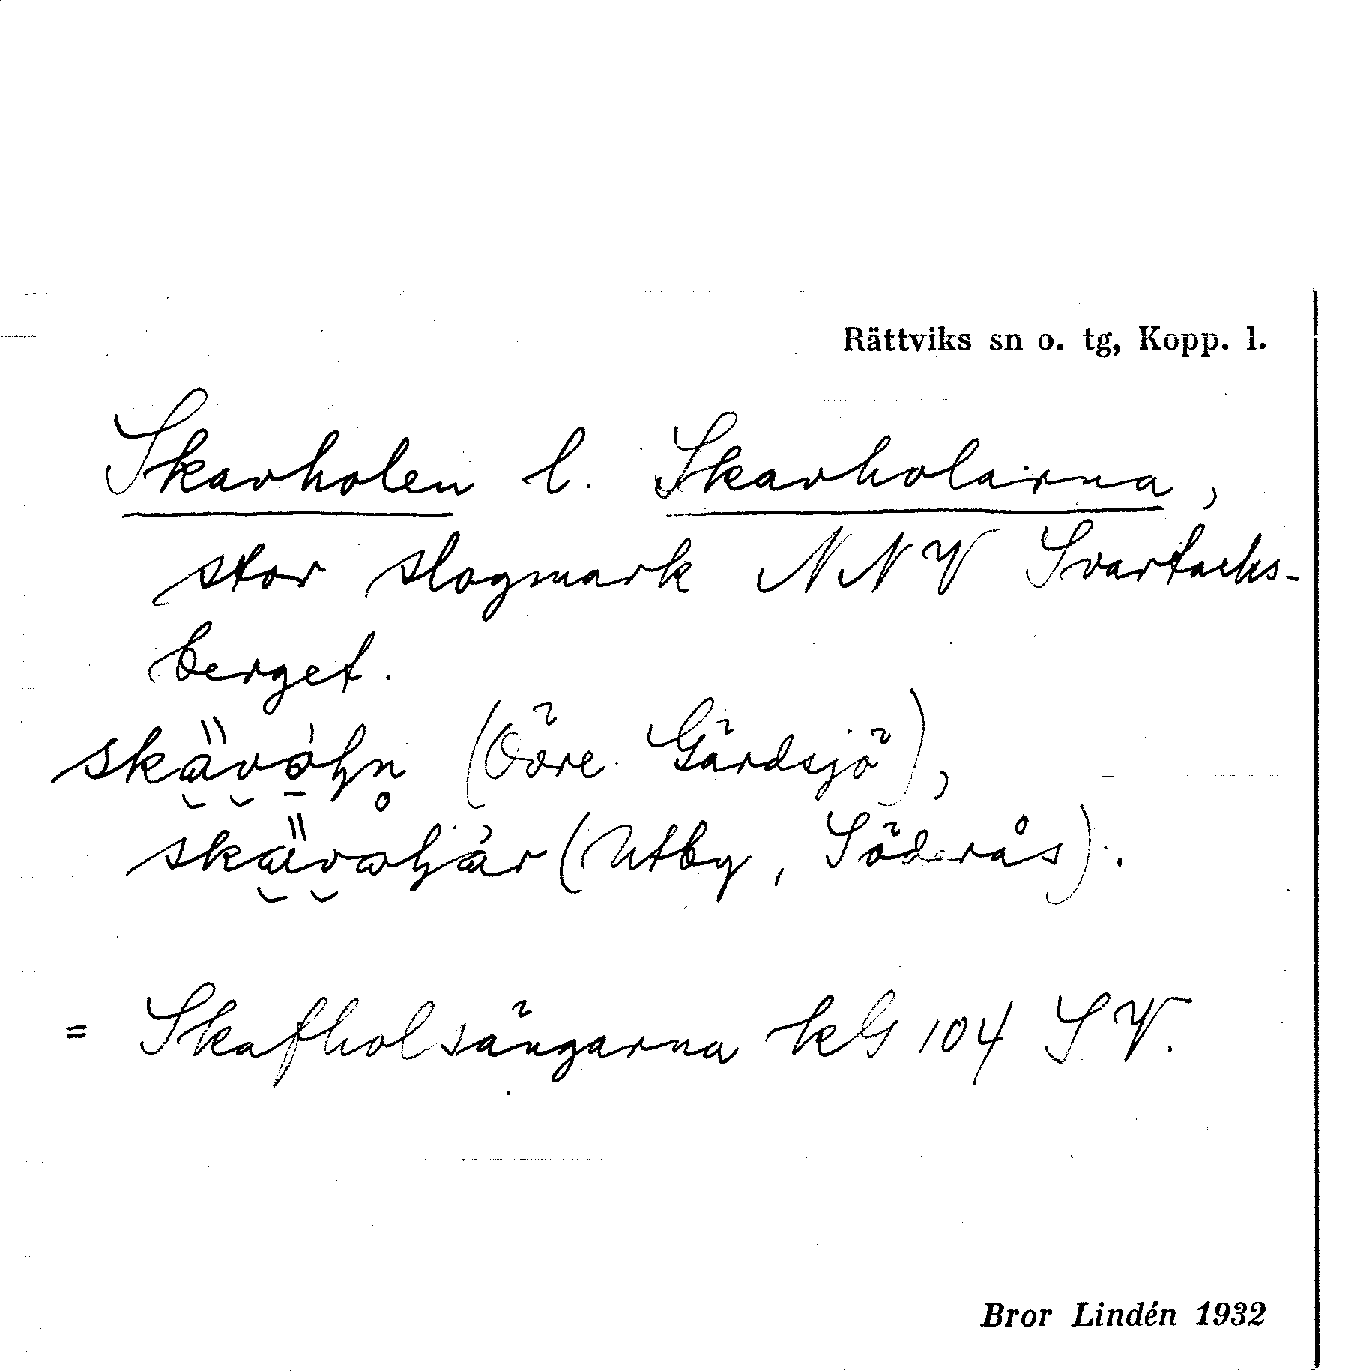 Rättviks sn o. tg, Kopp. l.
Skavholen l. Skavholarna,
stor slogmark NNV Svartacks-
berget.
(Övre Gärdsjö),
(Utby, Söderås).
= Skafholsängarna kls 104 SV.
Bror Lindén 1932